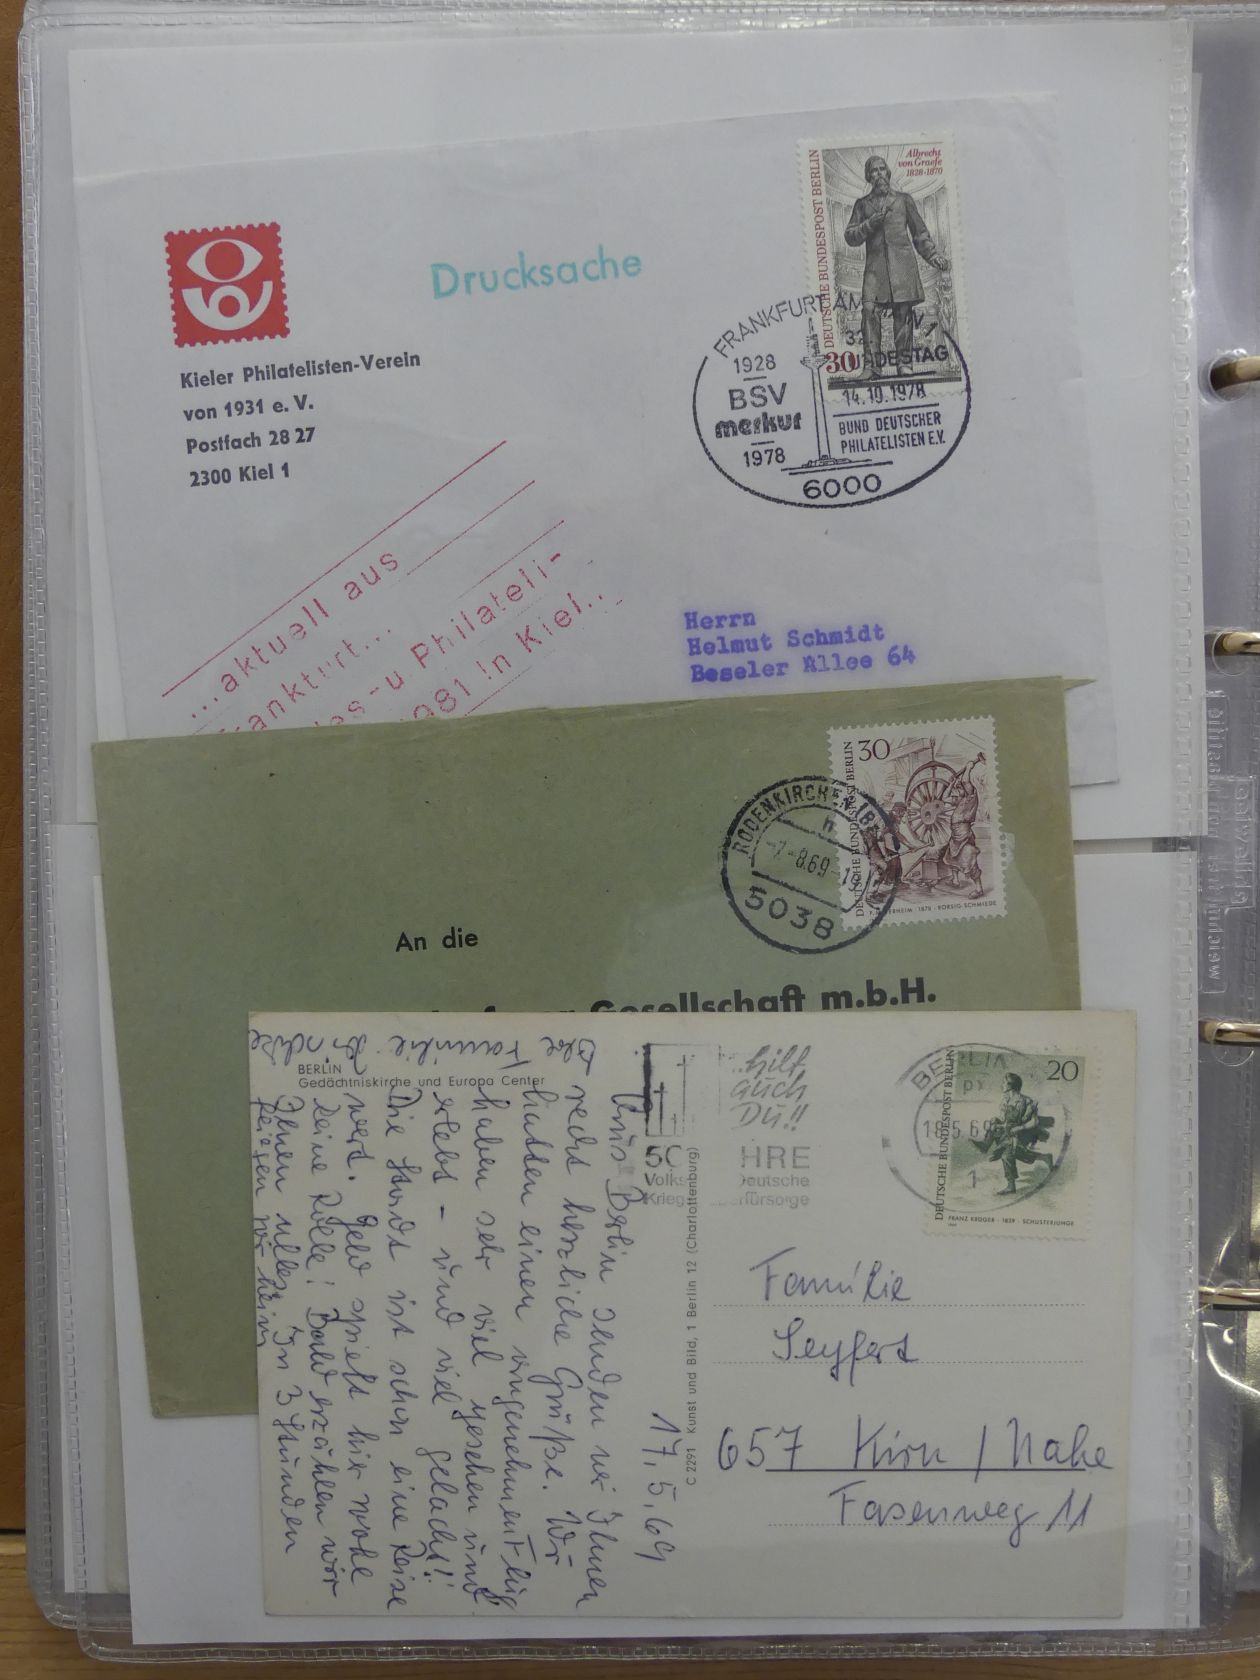 Albrecht
von Graefe
1828-1870
DEUTSCHE BUNDESPOST BERLIN
30
Drucksache
Kieler Philatelisten-Verein
von 1931 e. V.
Postfach 28 27
2300 Kiel 1
FRANKFURT AM MAIN 1
1928
BSV
merkur
1978
32
BUNDESTAG
14.10.1978
BUND DEUTSCHER
PHILATELISTEN E.V.
6000
...aktuell aus
Frankfurt...
es-u Philateli-
1981 in Kiel..
Herrn
Helmut Schmidt
Beseler Allee 64
30
DEUTSCHE BUNDESPOST BERLIN
1878 · BORSIG-SCHMIEDE
RODENKIRCHEN (B
-7.-8.69-
5038
An die
Gesellschaft m.b.H.
BERLIN
Gedächtniskirche und Europa Center
...hilf
auch
DU!!
50 HRE
Volks Deutsche
Krieg erfürsorge
BERLIN
18.5.69
1
20
DEUTSCHE BUNDESPOST BERLIN
FRANZ KRÜGER · 1839 · SCHUSTERJUNGE
C 2291 Kunst und Bild, 1 Berlin 12 (Charlottenburg)
17.5.69
Aus Berlin senden wir Ihnen
recht herzliche Grüße. Wir
hatten einen angenehmen Flug
haben sehr viel gesehen und
erlebt - und viel gelacht!!
Die Stadt ist schon eine Reise
wert. Geld spielt hier wohl
keine Rolle! Bald erzählen wir
Ihnen alles. In 3 Stunden
fliegen wir heim
Familie
Seyfert
657 Kirn / Nahe
Fasenweg 11